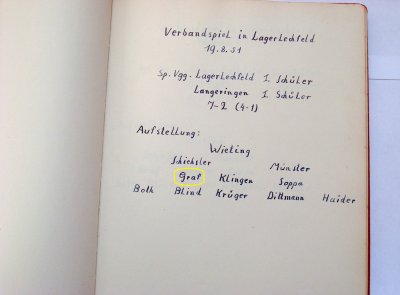 Verbandspiel in Lagerlechfeld
19.8.51
Sp. Vgg. Lagerlechfeld I. Schüler
Langeringen I. Schüler
7-2 (4-1)
Aufstellung:
Wieting
Schichsler Münster
Graf Klingen Sappa
Both Blind Krüger Dittmann Haider